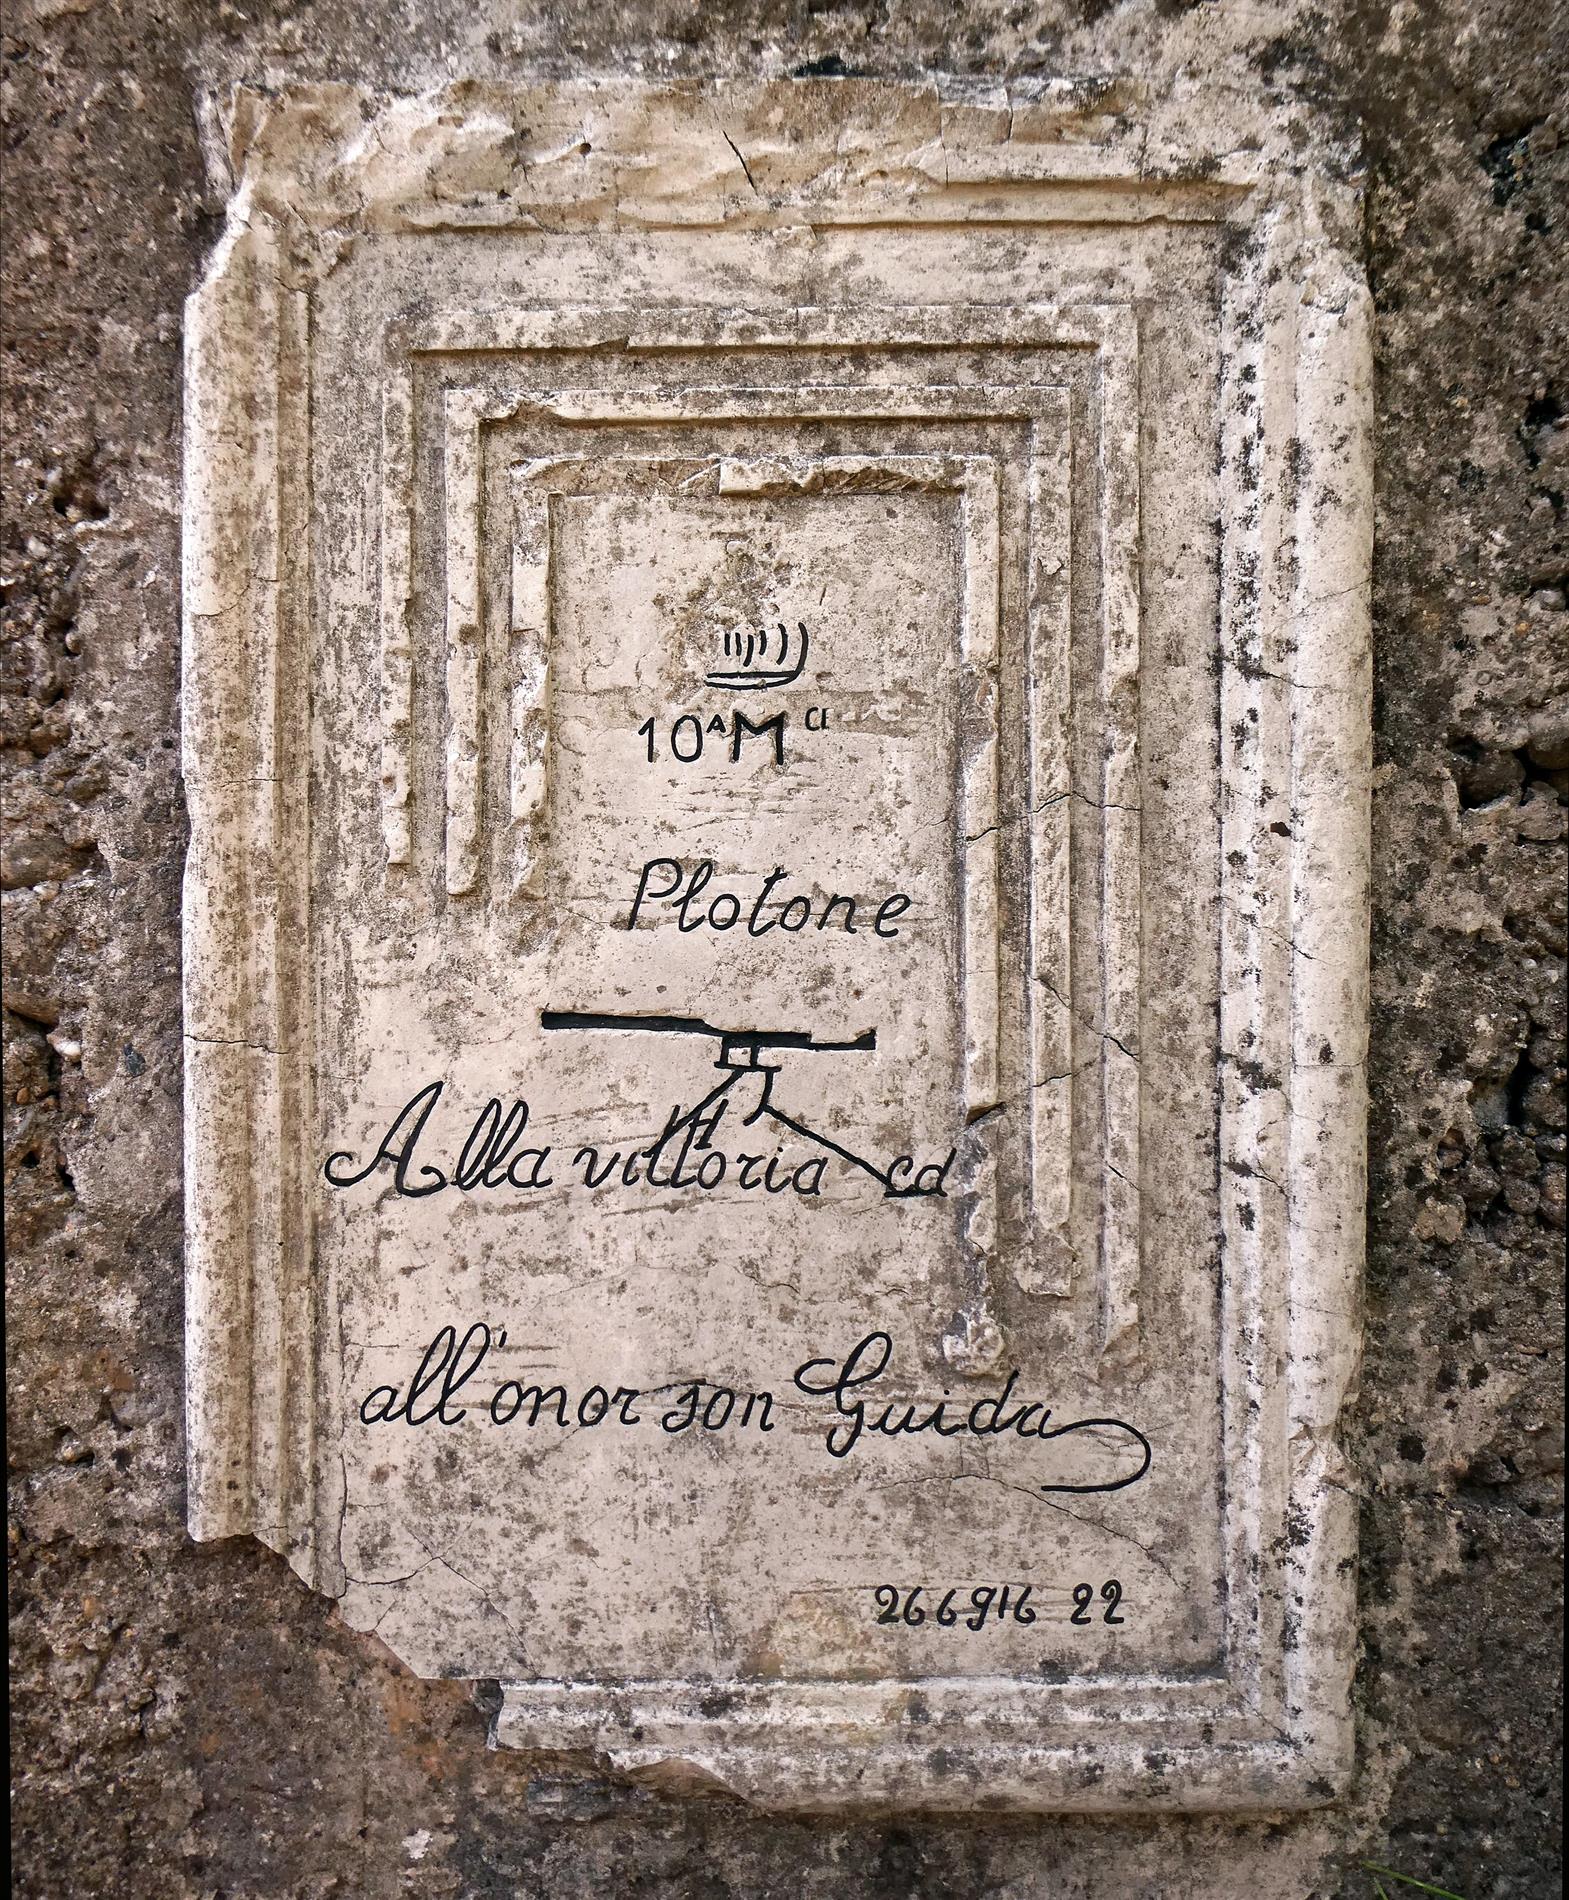 10ᴬ M ᶜᴵ
Plotone
Alla vittoria ed
all'onor son Guida
266916 22